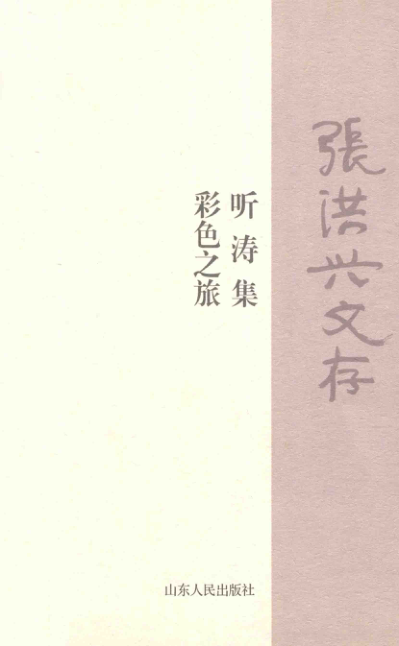 張洪兴文存
听涛集
彩色之旅
山东人民出版社